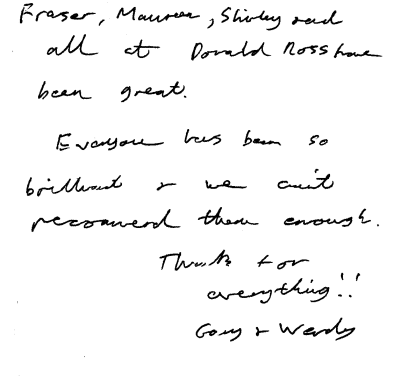 Fraser, Maureen, Shirley and
all at Donald Ross have
been great.
Everyone has been so
brilliant & we can't
recommend them enough.
Thank for
everything!!
Gary & Wendy